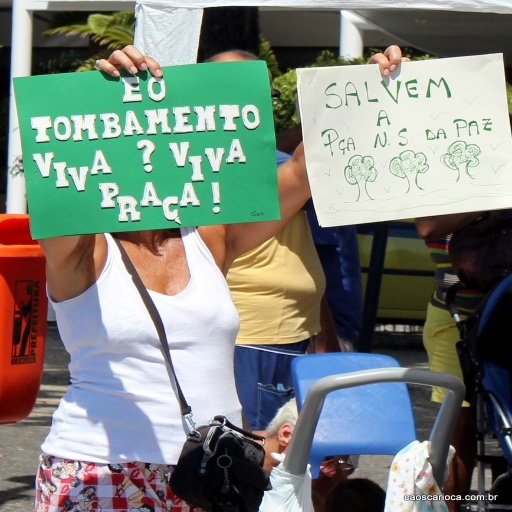 EO
TOMBAMENTO
VIVA ? VIVA
PRAÇA!
SALVEM
A
PÇA N.S. DA PAZ
PREFEITURA
caoscarioca.com.br